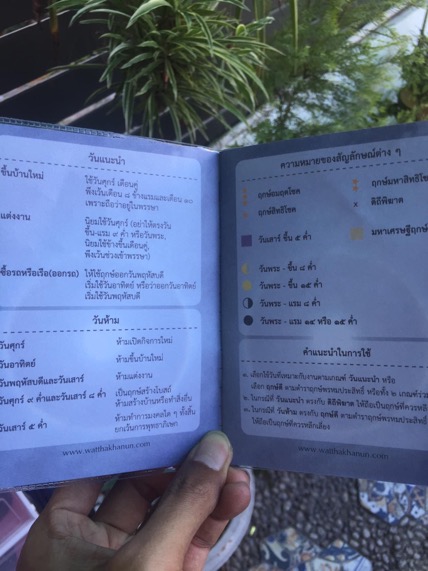 วันแนะนำ
ขึ้นบ้านใหม่
ใช้วันศุกร์ เดือนคู่
พึงเว้นเดือน ๘ ข้างแรมและเดือน ๑๐
เพราะถือว่าอยู่ในพรรษา
แต่งงาน
นิยมใช้วันศุกร์ (อย่าให้ตรงวัน
ขึ้น-แรม ๙ ค่ำ หรือวันพระ,
นิยมใช้ข้างขึ้นเดือนคู่,
พึงเว้นช่วงเข้าพรรษา)
ซื้อรถหรือเรือ(ออกรถ)
ให้ใช้ฤกษ์ออกวันพฤหัสบดี
เริ่มใช้วันอาทิตย์ หรือว่าออกวันอาทิตย์
เริ่มใช้วันพฤหัสบดี
วันห้าม
วันศุกร์ ห้ามเปิดกิจการใหม่
วันอาทิตย์ ห้ามขึ้นบ้านใหม่
วันพฤหัสบดีและวันเสาร์ ห้ามแต่งงาน
วันศุกร์ ๙ ค่ำและวันเสาร์ ๘ ค่ำ เป็นฤกษ์สร้างโบสถ์
ห้ามสร้างบ้านหรือทำสิ่งอื่น
วันเสาร์ ๕ ค่ำ ห้ามทำการมงคลใด ๆ ทั้งสิ้น
ยกเว้นการพุทธาภิเษก
www.watthakhanun.com
ความหมายของสัญลักษณ์ต่าง ๆ
ฤกษ์อมฤตโชค
ฤกษ์มหาสิทธิโชค
ฤกษ์สิทธิโชค
× ดิถีพิฆาต
วันเสาร์ ขึ้น ๕ ค่ำ
มหาเศรษฐีฤกษ์
วันพระ - ขึ้น ๘ ค่ำ
วันพระ - ขึ้น ๑๕ ค่ำ
วันพระ - แรม ๘ ค่ำ
วันพระ - แรม ๑๔ หรือ ๑๕ ค่ำ
คำแนะนำในการใช้
๑. เลือกใช้วันที่เหมาะกับงานตามเกณฑ์ วันแนะนำ หรือ
เลือก ฤกษ์ดี ตามตำราฤกษ์พรหมประสิทธิ์ หรือทั้ง ๒ เกณฑ์
๒. ในกรณีที่ วันแนะนำ ตรงกับ ดิถีพิฆาต ให้ถือเป็นฤกษ์ที่ควร
๓. ในกรณีที่ วันห้าม ตรงกับ ฤกษ์ดี ตามตำราฤกษ์พรหมประสิทธิ์
ให้ถือเป็นฤกษ์ที่ควรหลีกเลี่ยง
www.watthakhanun.com